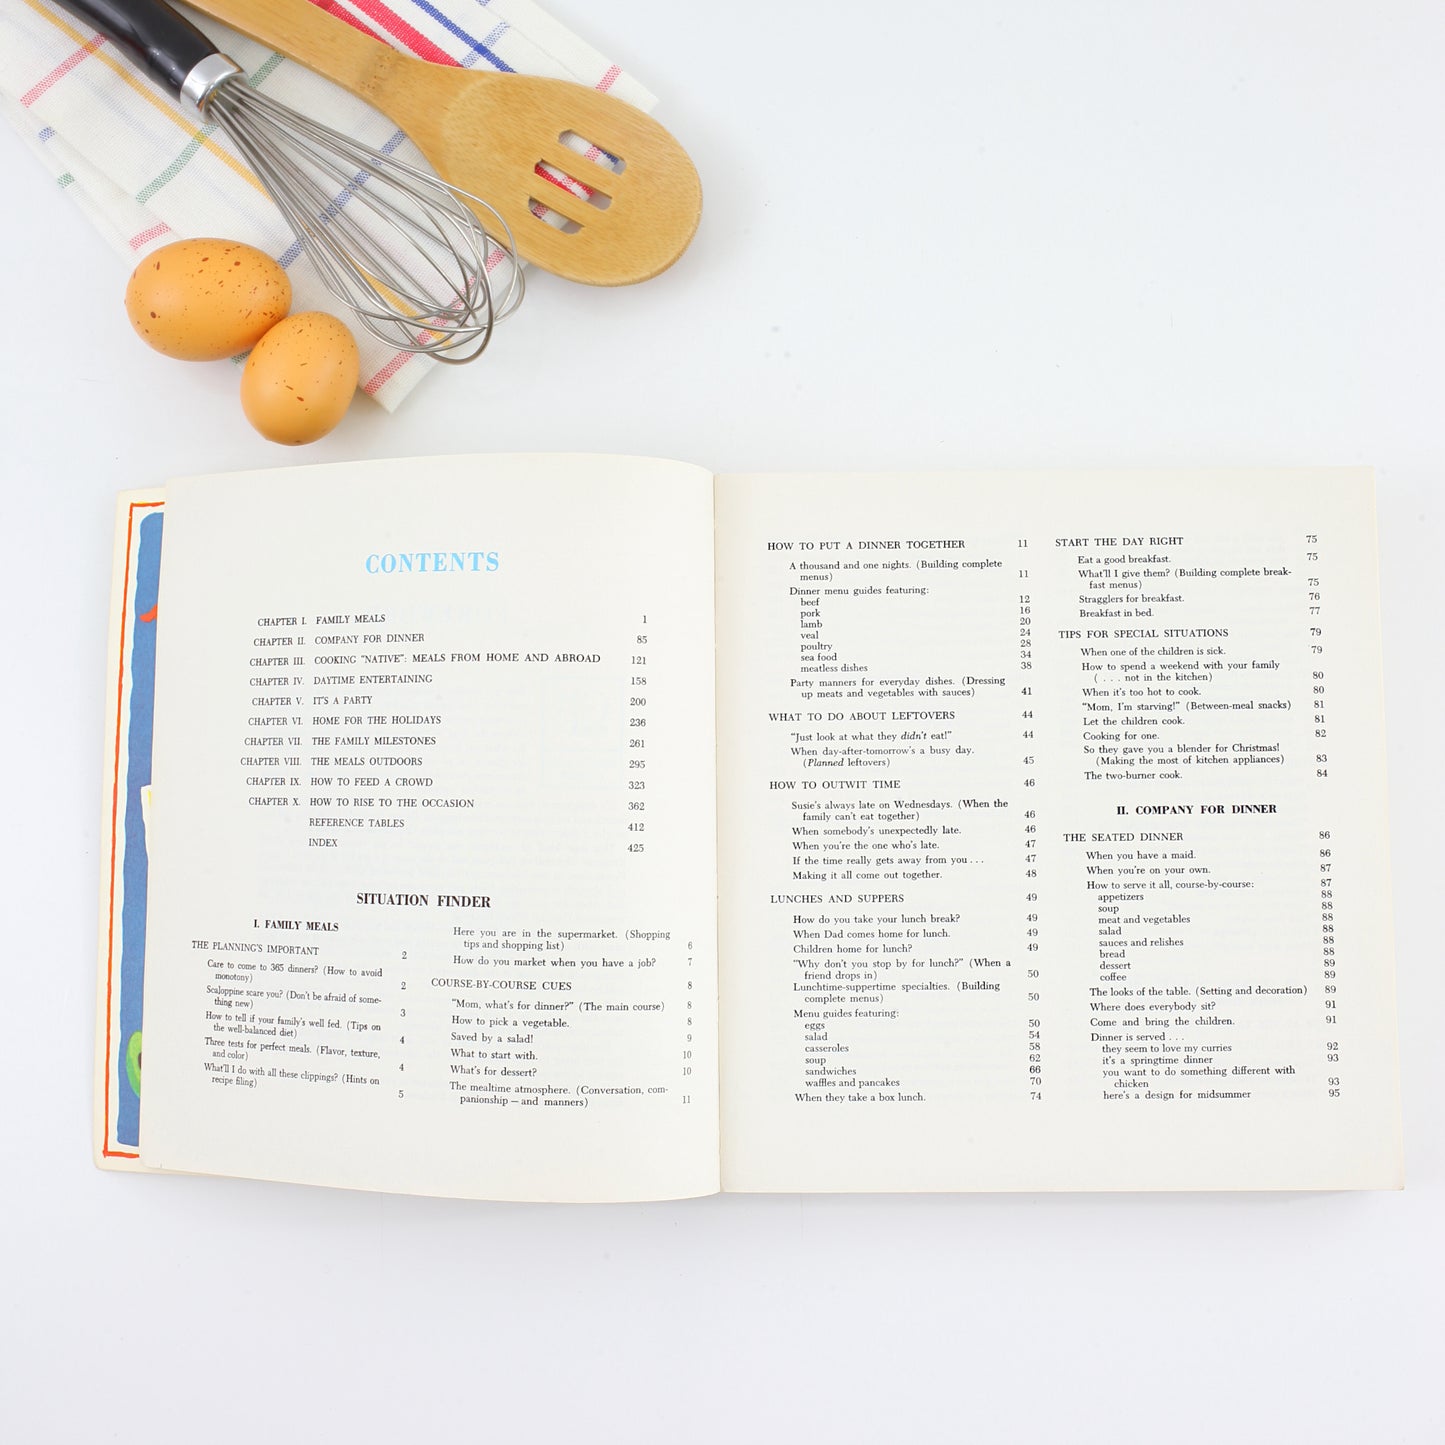 CONTENTS
CHAPTER I. FAMILY MEALS 1
CHAPTER II. COMPANY FOR DINNER 85
CHAPTER III. COOKING "NATIVE": MEALS FROM HOME AND ABROAD 121
CHAPTER IV. DAYTIME ENTERTAINING 158
CHAPTER V. IT'S A PARTY 200
CHAPTER VI. HOME FOR THE HOLIDAYS 236
CHAPTER VII. THE FAMILY MILESTONES 261
CHAPTER VIII. THE MEALS OUTDOORS 295
CHAPTER IX. HOW TO FEED A CROWD 323
CHAPTER X. HOW TO RISE TO THE OCCASION 362
REFERENCE TABLES 412
INDEX 425
SITUATION FINDER
I. FAMILY MEALS
THE PLANNING'S IMPORTANT 2
Care to come to 365 dinners? (How to avoid
monotony) 2
Scaloppine scare you? (Don't be afraid of some-
thing new) 3
How to tell if your family's well fed. (Tips on
the well-balanced diet) 4
Three tests for perfect meals. (Flavor, texture,
and color) 4
What'll I do with all these clippings? (Hints on
recipe filing) 5
Here you are in the supermarket. (Shopping
tips and shopping list) 6
How do you market when you have a job? 7
COURSE-BY-COURSE CUES 8
"Mom, what's for dinner?" (The main course) 8
How to pick a vegetable. 8
Saved by a salad! 9
What to start with. 10
What's for dessert? 10
The mealtime atmosphere. (Conversation, com-
panionship — and manners) 11
HOW TO PUT A DINNER TOGETHER 11
A thousand and one nights. (Building complete
menus) 11
Dinner menu guides featuring:
beef 12
pork 16
lamb 20
veal 24
poultry 28
sea food 34
meatless dishes 38
Party manners for everyday dishes. (Dressing
up meats and vegetables with sauces) 41
WHAT TO DO ABOUT LEFTOVERS 44
"Just look at what they didn't eat!" 44
When day-after-tomorrow's a busy day.
(Planned leftovers) 45
HOW TO OUTWIT TIME 46
Susie's always late on Wednesdays. (When the
family can't eat together) 46
When somebody's unexpectedly late. 46
When you're the one who's late. 47
If the time really gets away from you . . . 47
Making it all come out together. 48
LUNCHES AND SUPPERS 49
How do you take your lunch break? 49
When Dad comes home for lunch. 49
Children home for lunch? 49
"Why don't you stop by for lunch?" (When a
friend drops in) 50
Lunchtime-suppertime specialties. (Building
complete menus) 50
Menu guides featuring:
eggs 50
salad 54
casseroles 58
soup 62
sandwiches 66
waffles and pancakes 70
When they take a box lunch. 74
START THE DAY RIGHT 75
Eat a good breakfast. 75
What'll I give them? (Building complete break-
fast menus) 75
Stragglers for breakfast. 76
Breakfast in bed. 77
TIPS FOR SPECIAL SITUATIONS 79
When one of the children is sick. 79
How to spend a weekend with your family
( . . . not in the kitchen) 80
When it's too hot to cook. 80
"Mom, I'm starving!" (Between-meal snacks) 81
Let the children cook. 81
Cooking for one. 82
So they gave you a blender for Christmas!
(Making the most of kitchen appliances) 83
The two-burner cook. 84
II. COMPANY FOR DINNER
THE SEATED DINNER 86
When you have a maid. 86
When you're on your own. 87
How to serve it all, course-by-course: 87
appetizers 88
soup 88
meat and vegetables 88
salad 88
sauces and relishes 88
bread 88
dessert 89
coffee 89
The looks of the table. (Setting and decoration) 89
Where does everybody sit? 91
Come and bring the children. 91
Dinner is served . . .
they seem to love my curries 92
it's a springtime dinner 93
you want to do something different with
chicken 93
here's a design for midsummer 95